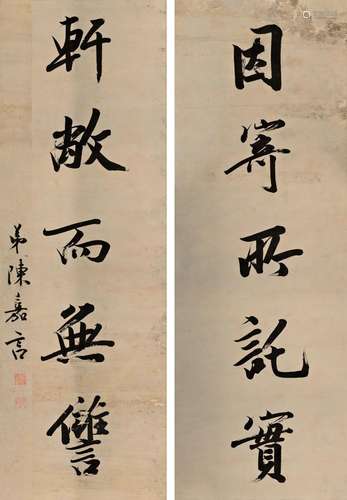 因寄所託實
軒敞而無讎
弟陳嘉言